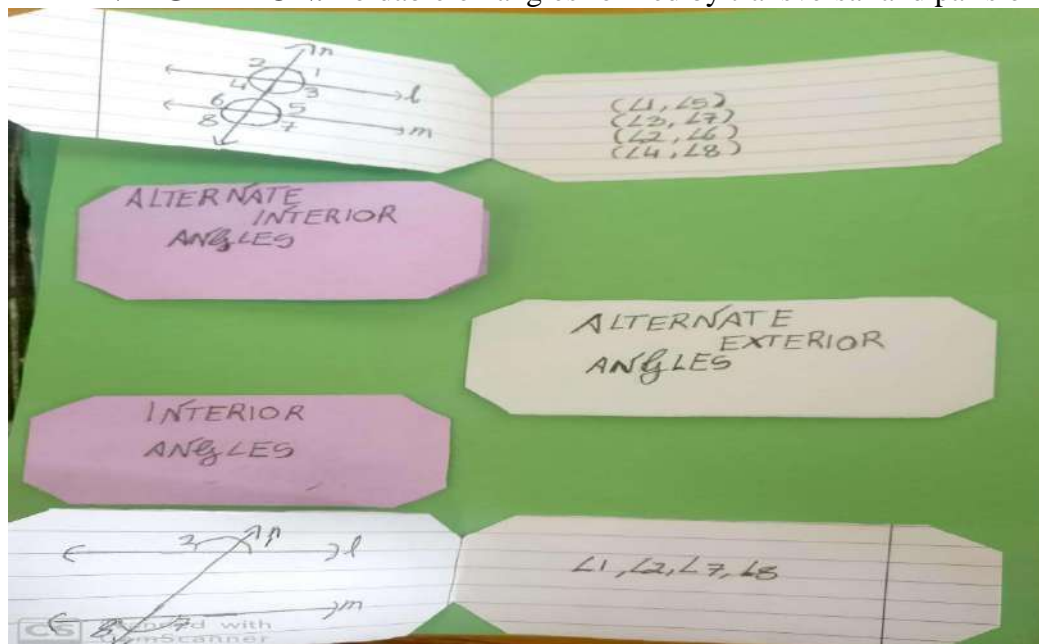 2 n
1
4 3 l
6 5
8 7 m
(∠1, ∠5)
(∠3, ∠7)
(∠2, ∠6)
(∠4, ∠8)
ALTERNATE
INTERIOR
ANGLES
ALTERNATE
EXTERIOR
ANGLES
INTERIOR
ANGLES
2 1 l
m
8 7
∠1, ∠2, ∠7, ∠8
CS Scanned with
CamScanner